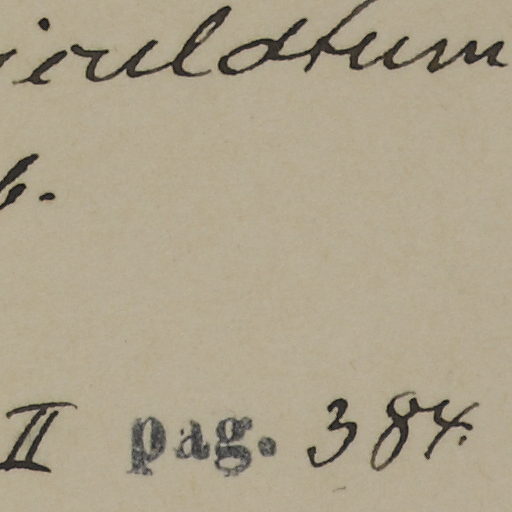 iculatum
b.
II pag. 384.